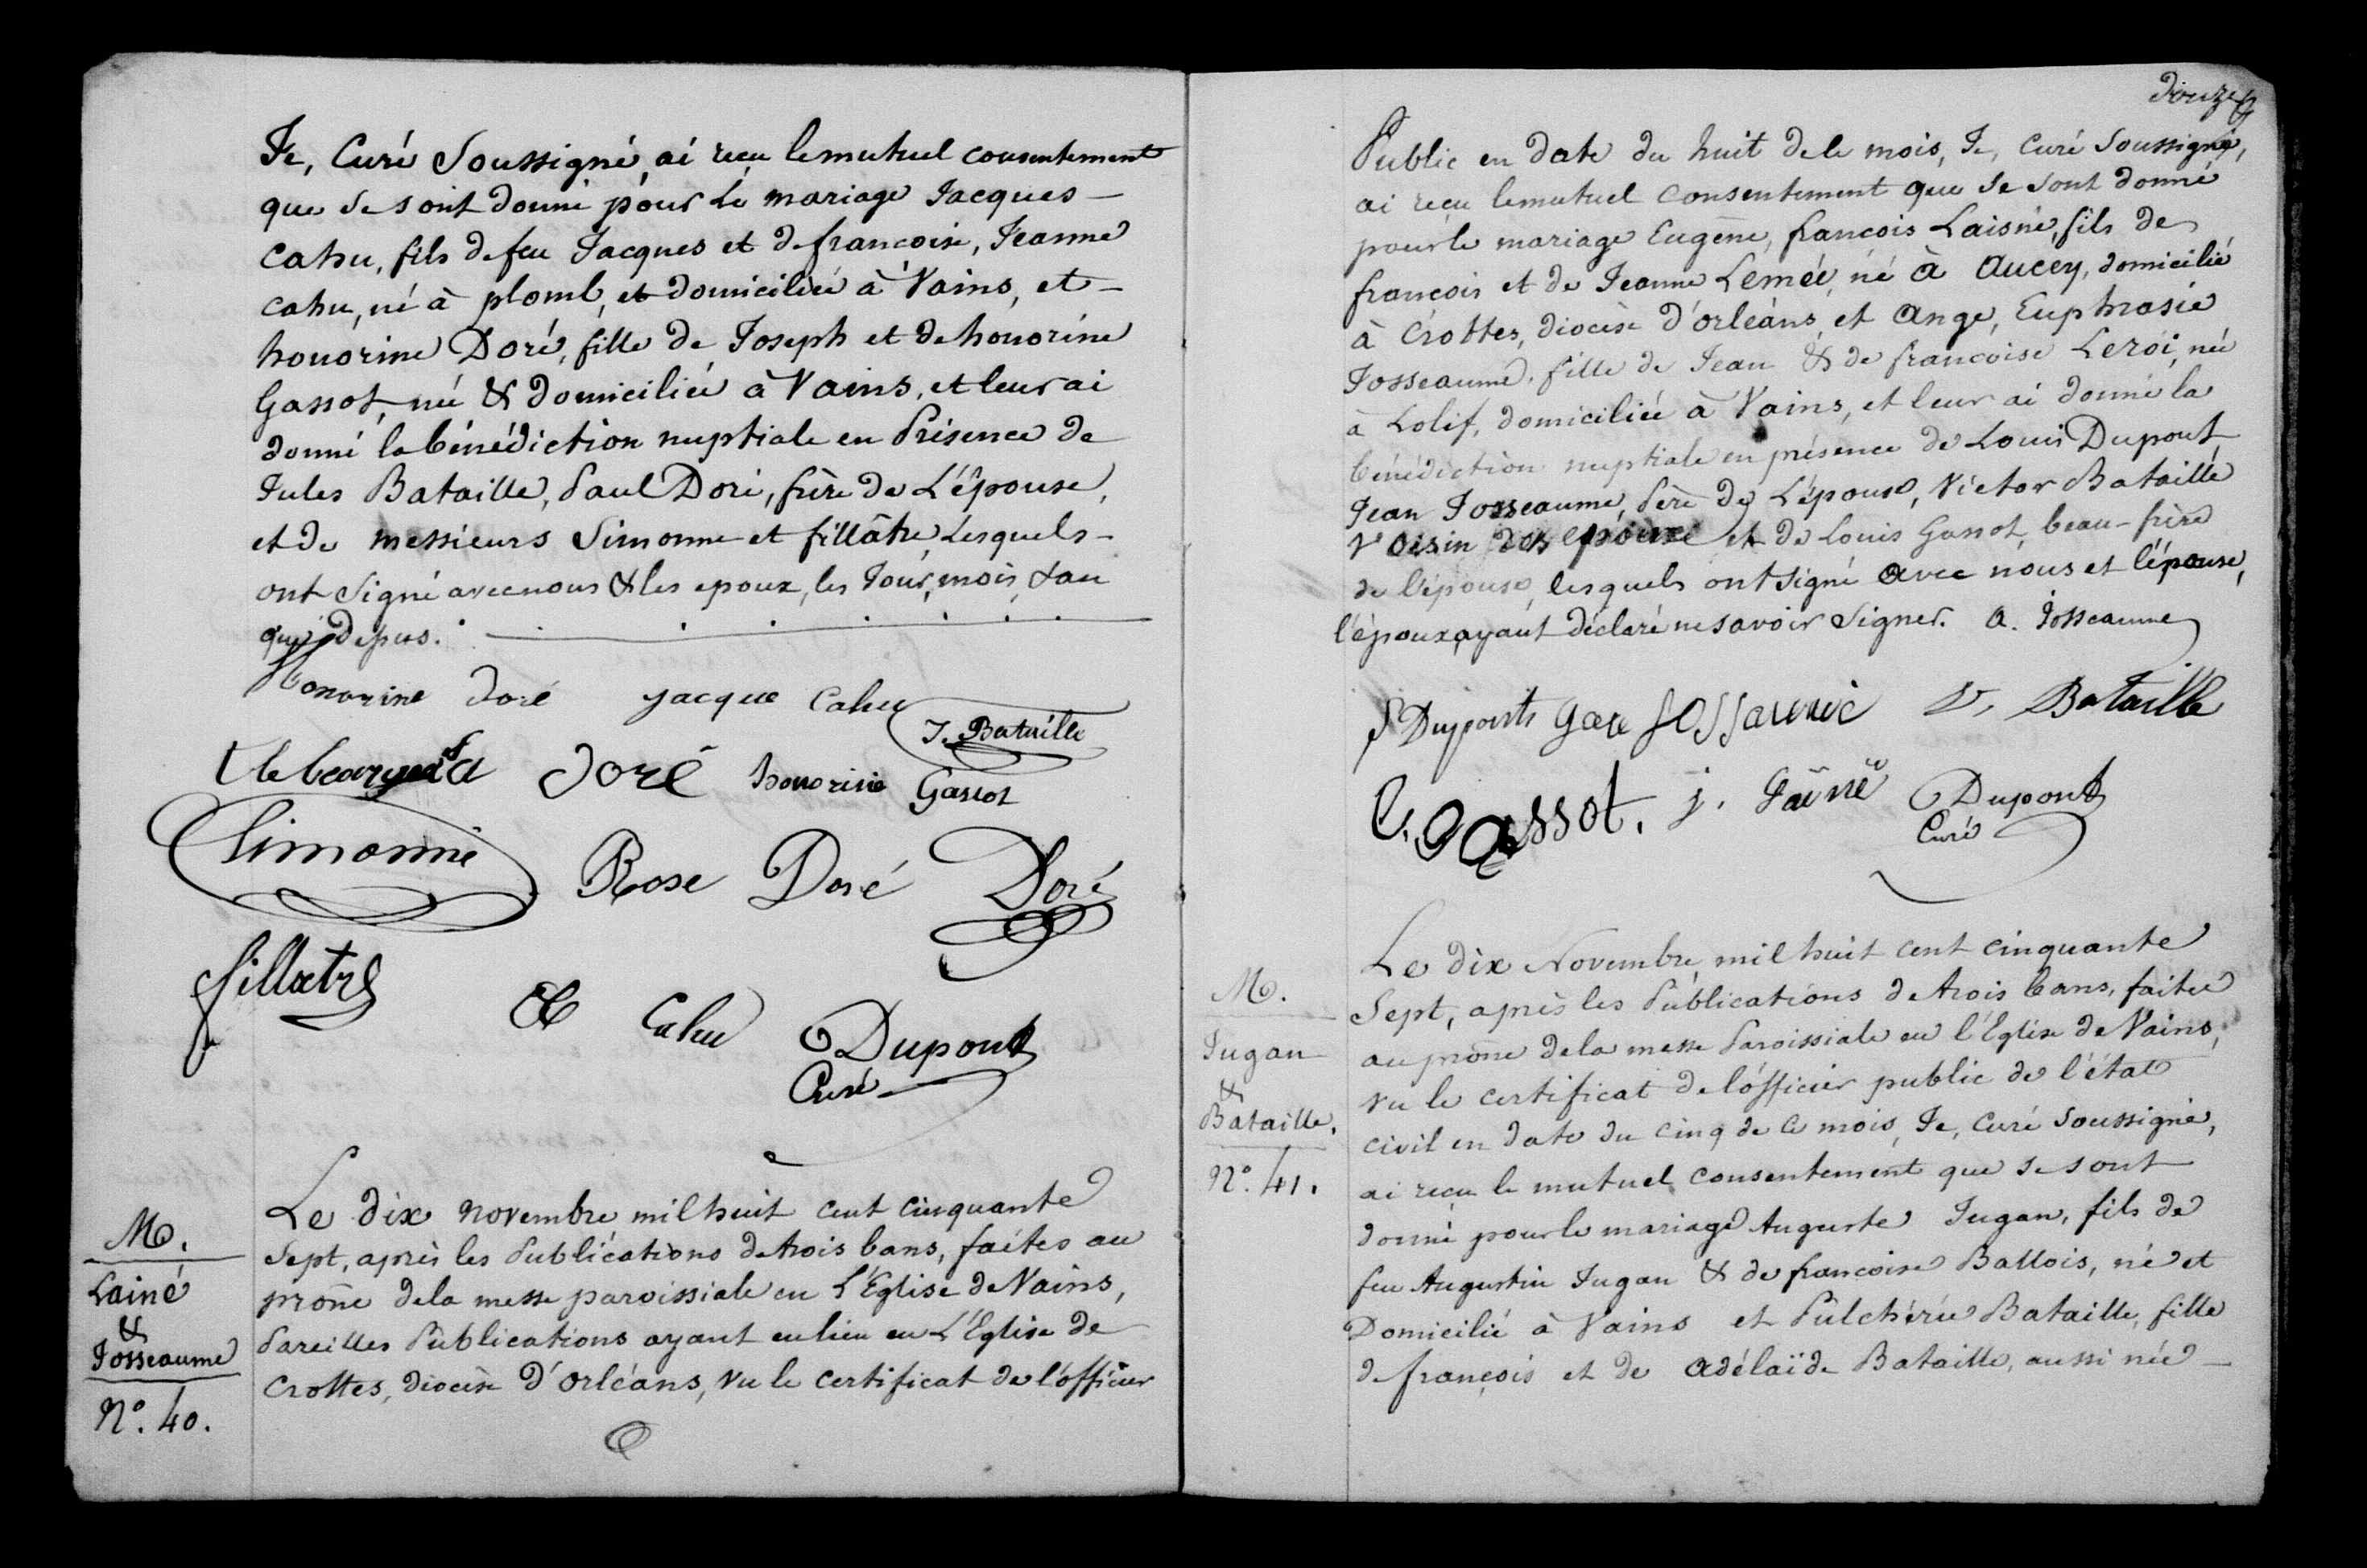 Je, Curé Soussigné, ai reçu le mutuel consentement
que se sont donné pour le mariage Jacques -
Cahu, fils de feu Jacques et de françoise, Jeanne
Cahu, né à plomb, et domicilié à Vains, et -
honorine Doré, fille de Joseph et de honorine
Gassot, née & domiciliée à Vains, et leur ai
donné la bénédiction nuptiale en Présence de
Jules Bataille, Paul Doré, frère de L'épouse,
et de messieurs Simonne et fillâtre, Lesquels -
ont Signé avec nous & les epoux, les Jour, mois, & an
que depus.
Honorine Doré Jacque Cahu
J. Bataille
Doré honorine Gassot
Simonne Rose Doré Doré
fillatre
Cahu Dupont
Curé
M.
Lainé
&
Josseaume
N°. 40.
Le dix novembre mil huit cent cinquante
Sept, après les Publications de trois bans, faites au
prône de la messe paroissiale en L'Eglise de Vains,
Pareilles Publications ayant eu lieu en L'Eglise de
Crottes, diocèse d'orléans, vu le certificat de l'officier
douze
Public en date du huit de ce mois, Je, Curé Soussigné,
ai reçu le mutuel consentement que se sont donné
pour le mariage Eugène, françois Laisné, fils de
françois et de Jeanne Lemée, né à Aucey, domicilié
à Crottes, diocèse d'orléans, et Ange, Euphrasie
Josseaume, fille de Jean & de françoise Leroi, née
à Lolif, domiciliée à Vains, et leur ai donné la
bénédiction nuptiale en présence de Louis Dupont
Jean Josseaume, Père de L'épouse, Victor Bataille
Voisin et de Louis Gassot, beau-frère
de l'épouse, lesquels ont signé avec nous et l'épouse,
l'époux ayant déclaré ne savoir Signer. A. Josseaume
Dupont V. Bataille
L. Gassot. j. Dupont
Curé
M.
Jugan
&
Bataille.
N°. 41.
Le dix Novembre mil huit cent cinquante
Sept, après les Publications de trois bans, faites
au prône de la messe Paroissiale en l'Eglise de Vains,
vu le certificat de l'officier public de l'état
civil en date du cinq de ce mois, Je, Curé Soussigné,
ai reçu le mutuel consentement que se sont
donné pour le mariage Auguste Jugan, fils de
feu Augustin Jugan & de françoise Ballois, né et
Domicilié à Vains et Pulchérie Bataille, fille
de françois et de Adélaïde Bataille, aussi née -